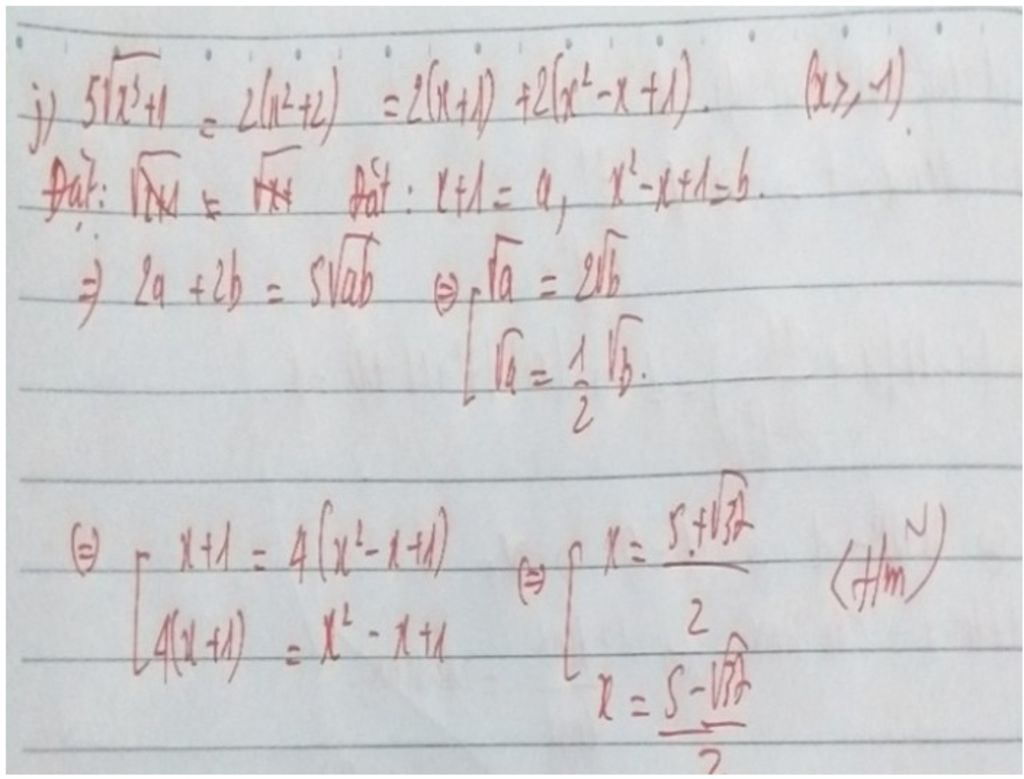 j) 5√(x³+1) = 2(x²+2) = 2(x+1) + 2(x²-x+1). (x ≥ -1).
Đặt: √(x+1) = √x+ Đặt : x+1 = a, x²-x+1=b.
⇒ 2a + 2b = 5√ab ⇔ [ √a = 2√b
√a = 1/2 √b.
⇔ [ x+1 = 4(x²-x+1) ⇔ [ x = (5+√37)/2 (t/m)
4(x+1) = x² - x+1
x = (5-√37)/2